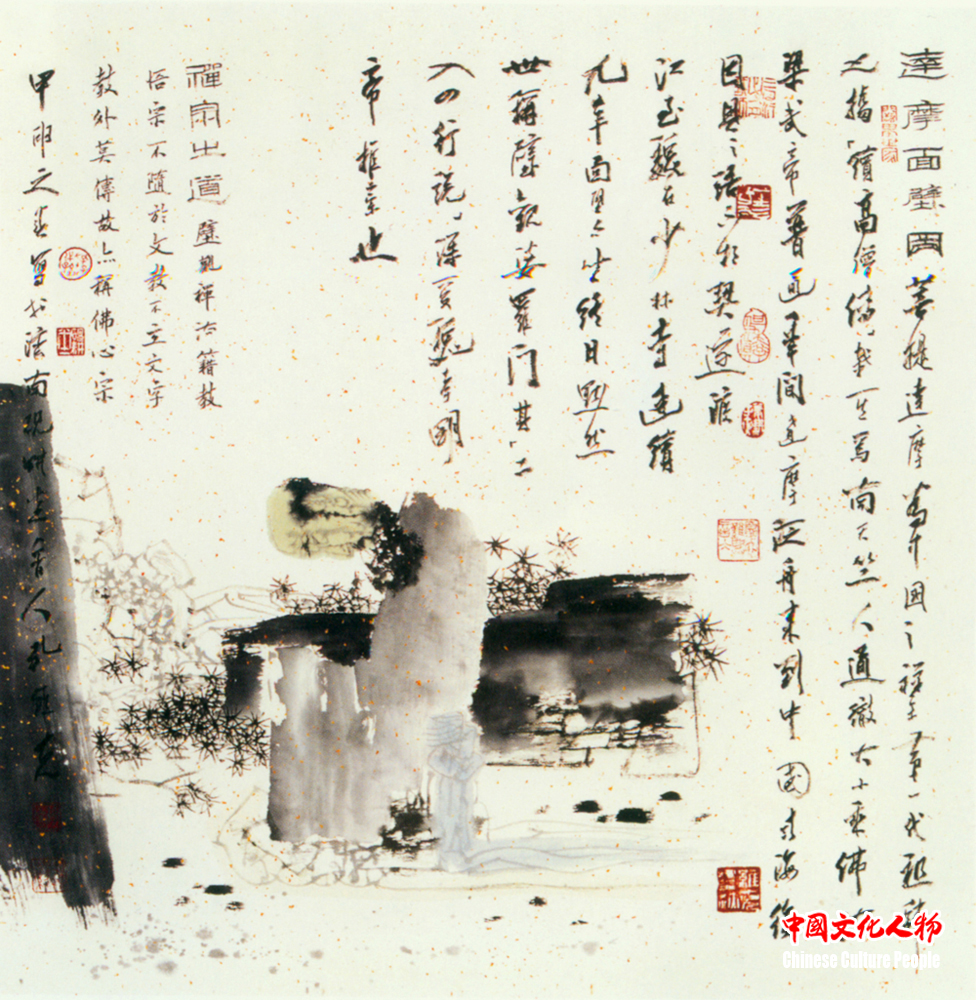 達摩面壁圖 菩提達摩為中國之禪宗第一代祖師
續高僧傳載 為南天竺人通徹大小乘佛
梁武帝普通年間達摩泛舟來到中國
因與之語不相契遂渡
江至魏居少林寺連續
九年面壁 坐終日默然
世稱壁觀婆羅門其二
入四行說深受魏孝明
帝推崇也
禪宗之道 壁觀禪法籍教
悟宗不隨於文教不立文字
教外莫傳故亦稱佛心宗
甲申之春寫於 人孔維克
中國文化人物
Chinese Culture People